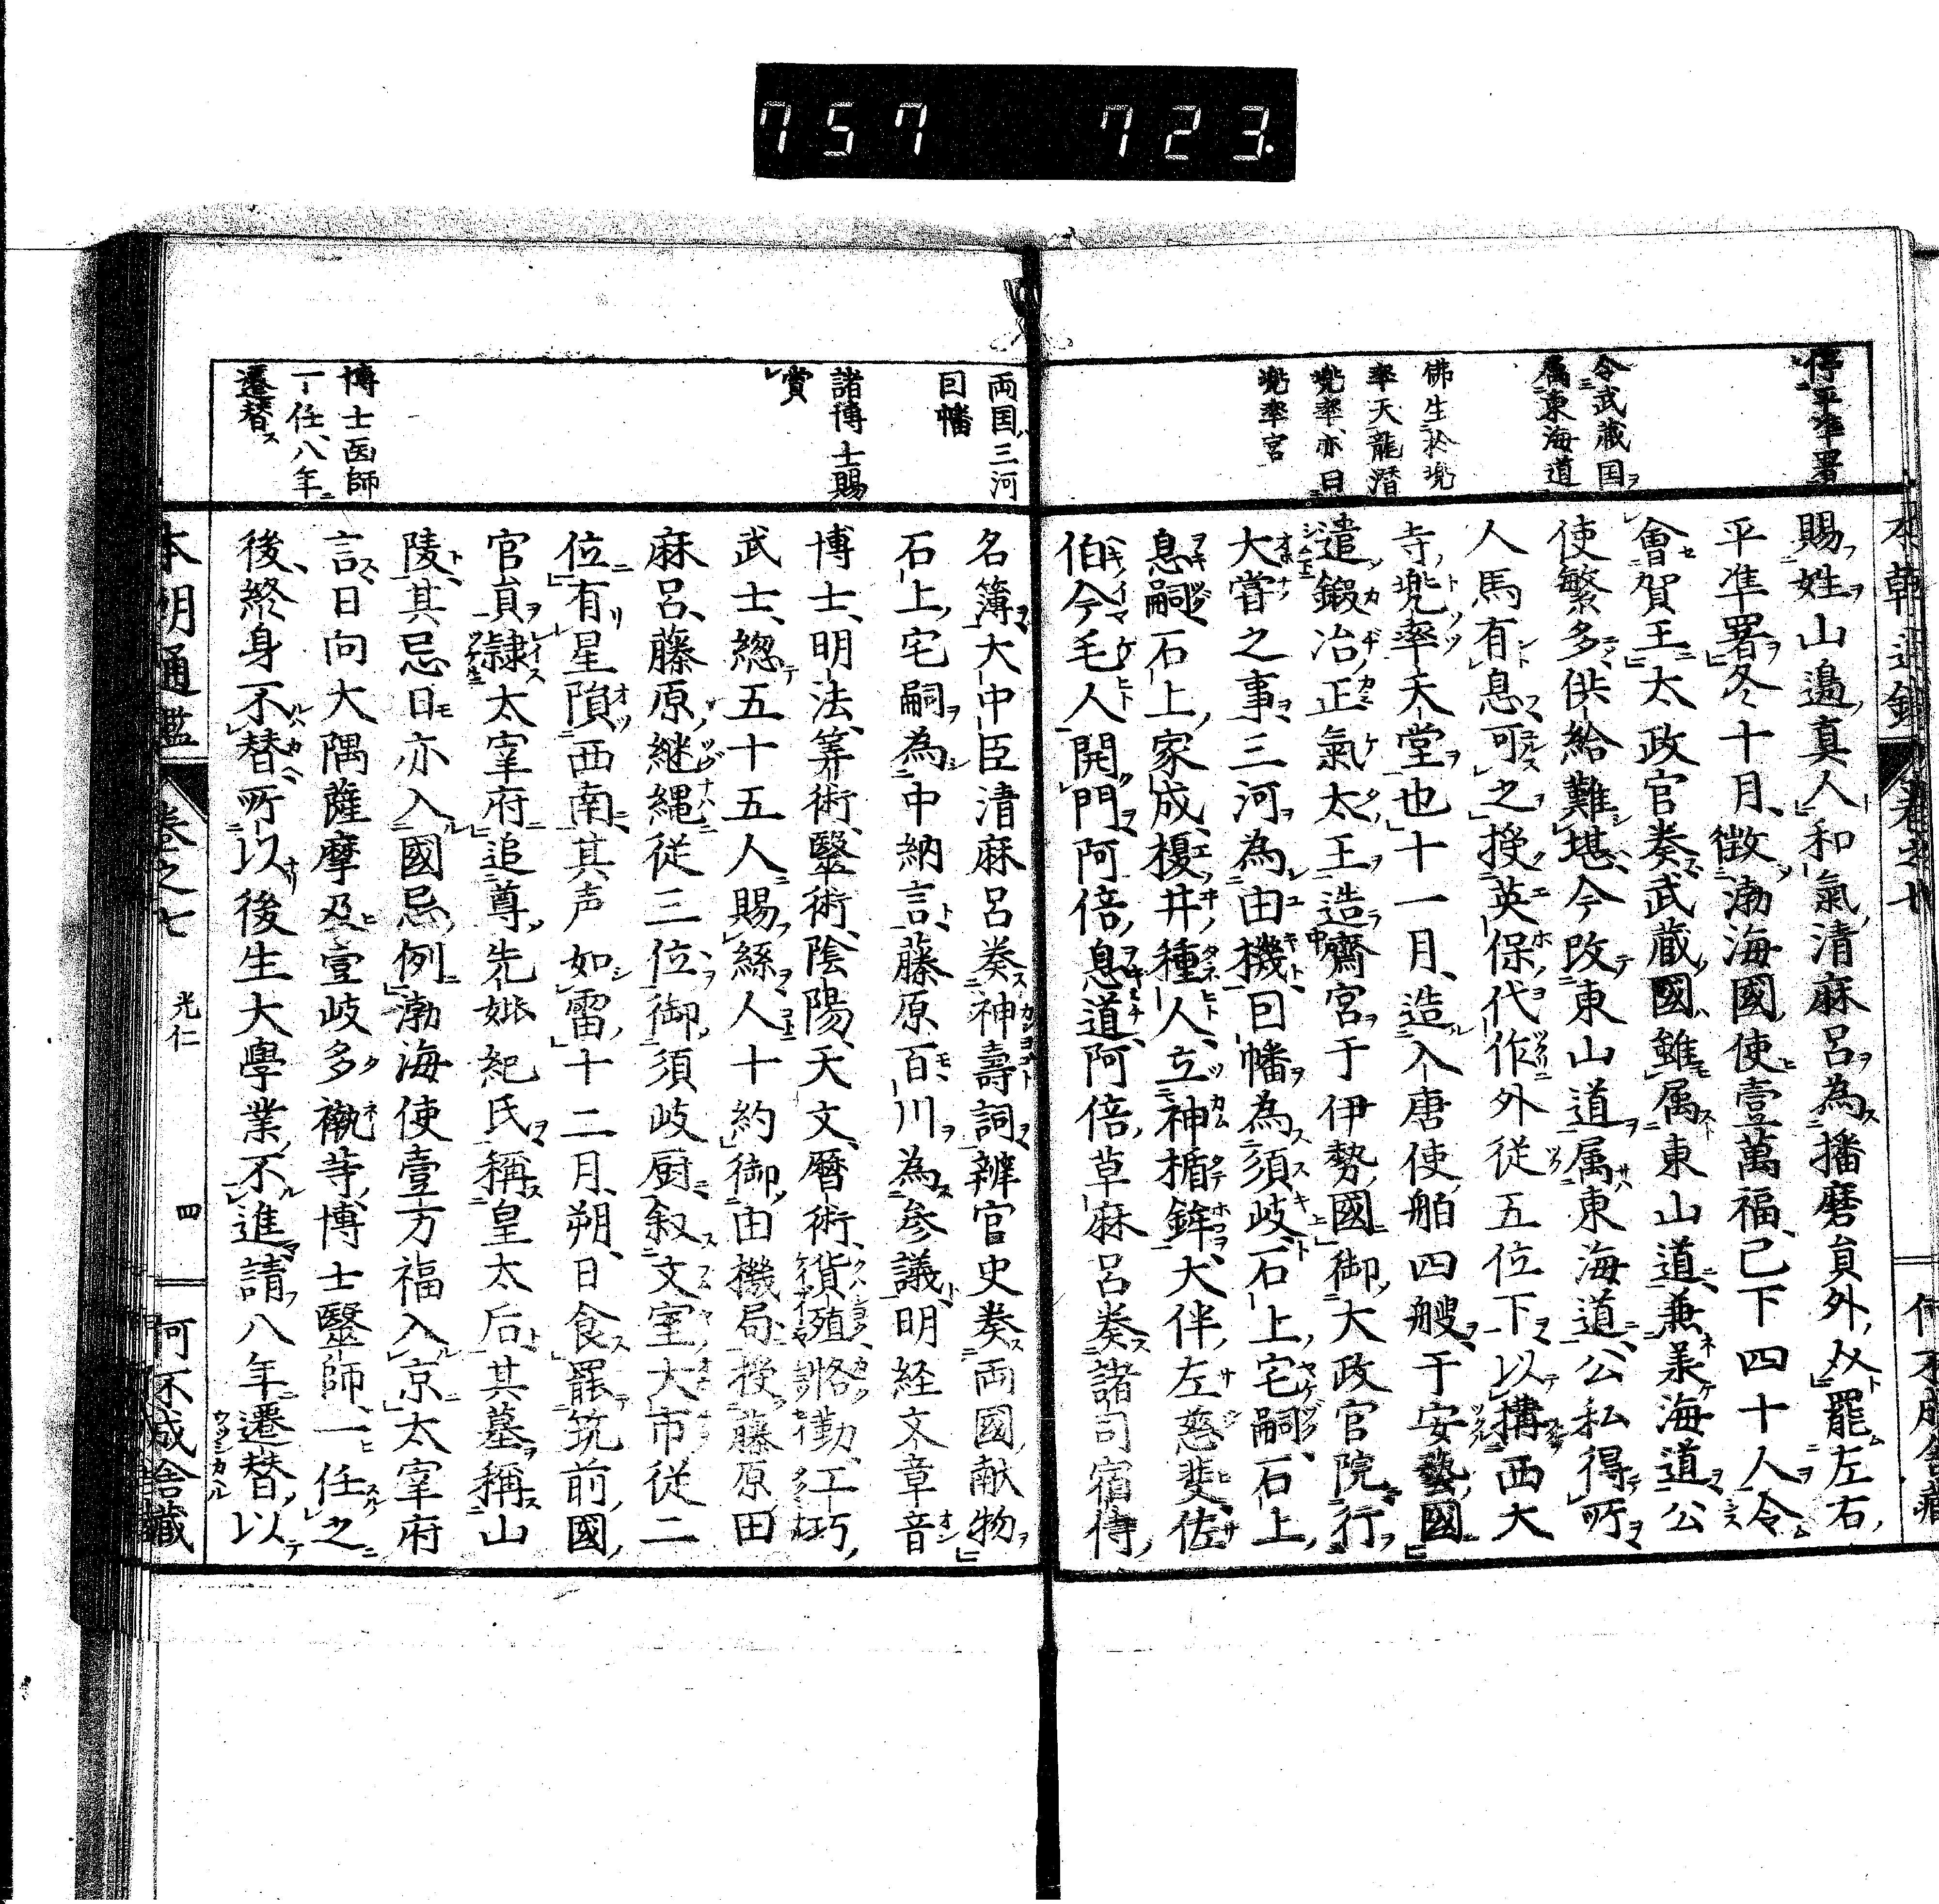 757 723.
停平準署
令武蔵国
属東海道
佛生於兜
率天龍潜
兜率亦曰
兜率宮
賜姓山邉真人和氣清麻呂為播磨貟外从罷左右
平準署冬十月徴渤海國使壹萬福已下四十人令
會賀王太政官奏武蔵國雖属東山道兼美海道公
使繁多供給難堪今改東山道属東海道公私得所
人馬有息可之授英保代作外従五位下以搆西大
寺兜率天堂也十一月造入唐使舶四艘于安藝國
遣鍜冶正氣太王造齋宮于伊勢國御大政官院行
大甞之事三河為由機囙幡為須岐石上宅嗣石上
息嗣石上家成榎井種人立神楯鉾大伴左慈斐佐
伯今毛人開門阿倍息道阿倍草麻呂奏諸司宿侍
両国三河
囙幡
諸博士賜
賞
博士医師
一任八年
遷替ス
名簿大中臣清麻呂奏神壽詞辨官史奏両國献物
石上宅嗣為中納言藤原百川為参議明経文章音
博士明法筭術醫術陰陽天文暦術貨殖恪勤工巧
武士総五十五人賜絲人十約御由機局授藤原田
麻呂藤原継縄従三位御須岐厨叙文室大市従二
位有星隕西南其声如雷十二月朔日食罷筑前國
官貟隷太宰府追尊先妣紀氏稱皇太后其墓稱山
陵其忌日亦入國忌例渤海使壹万福入京太宰府
言日向大隅薩摩及壹岐多褹等博士醫師一任之
後終身不替所以後生大學業不進請八年遷替以
本朝通鑑 巻之七 光仁 四 何不成舎藏